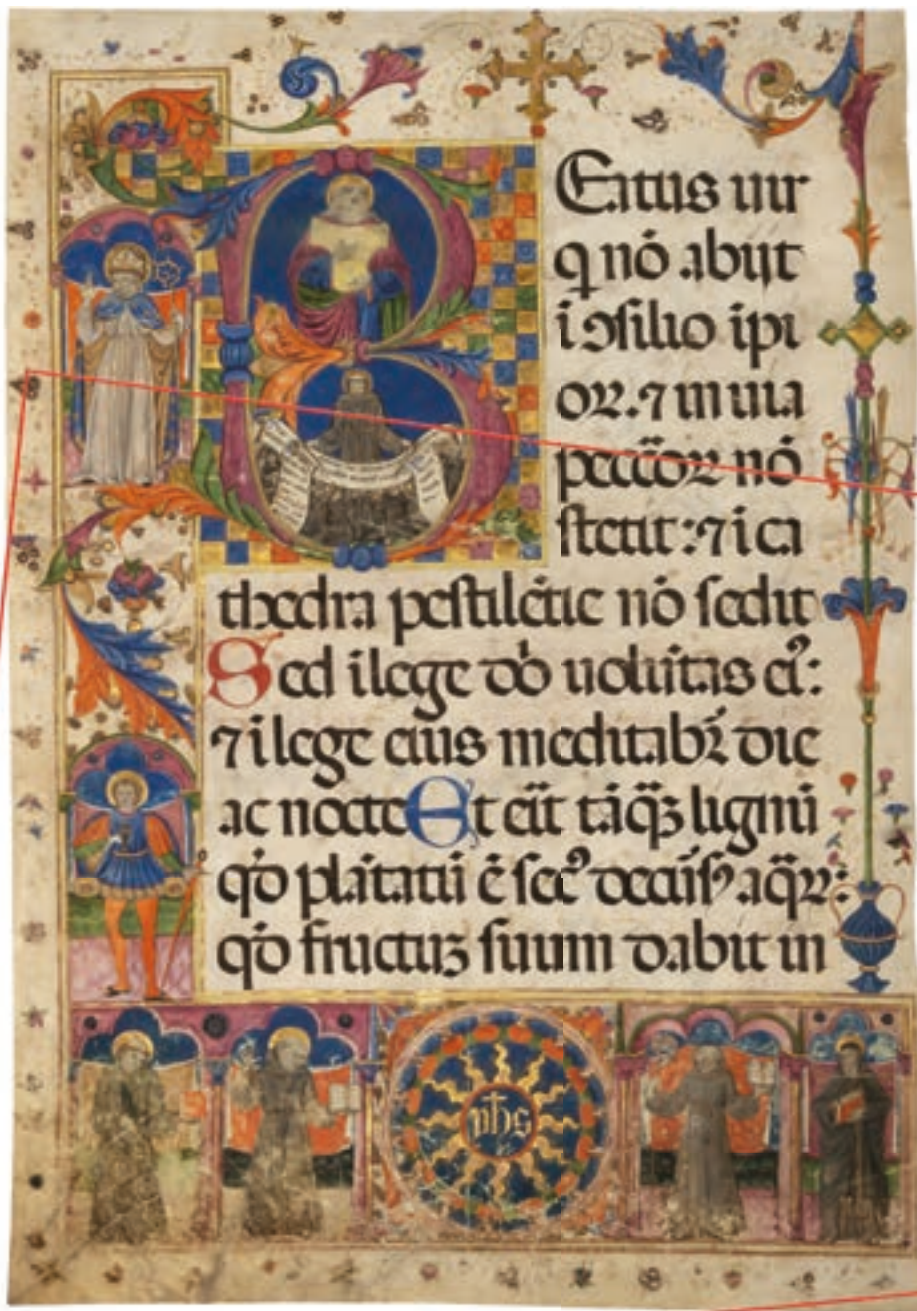 BEatus uir
q nō abijt
i ɔsilio ipi
oꝝ. ⁊ in uia
pccōꝝ nō
stetit: ⁊ i ca
thedra pestilētie nō sedit
Sed i lege dō uolūtas eꝰ:
⁊ i lege eius meditabr̄ die
ac nocte Et eīt tāqꝫ lignū
qd̄ plātatū ē secꝰ decursꝰ aqꝝ:
qd̄ fructuꝫ suum dabit in
yhs